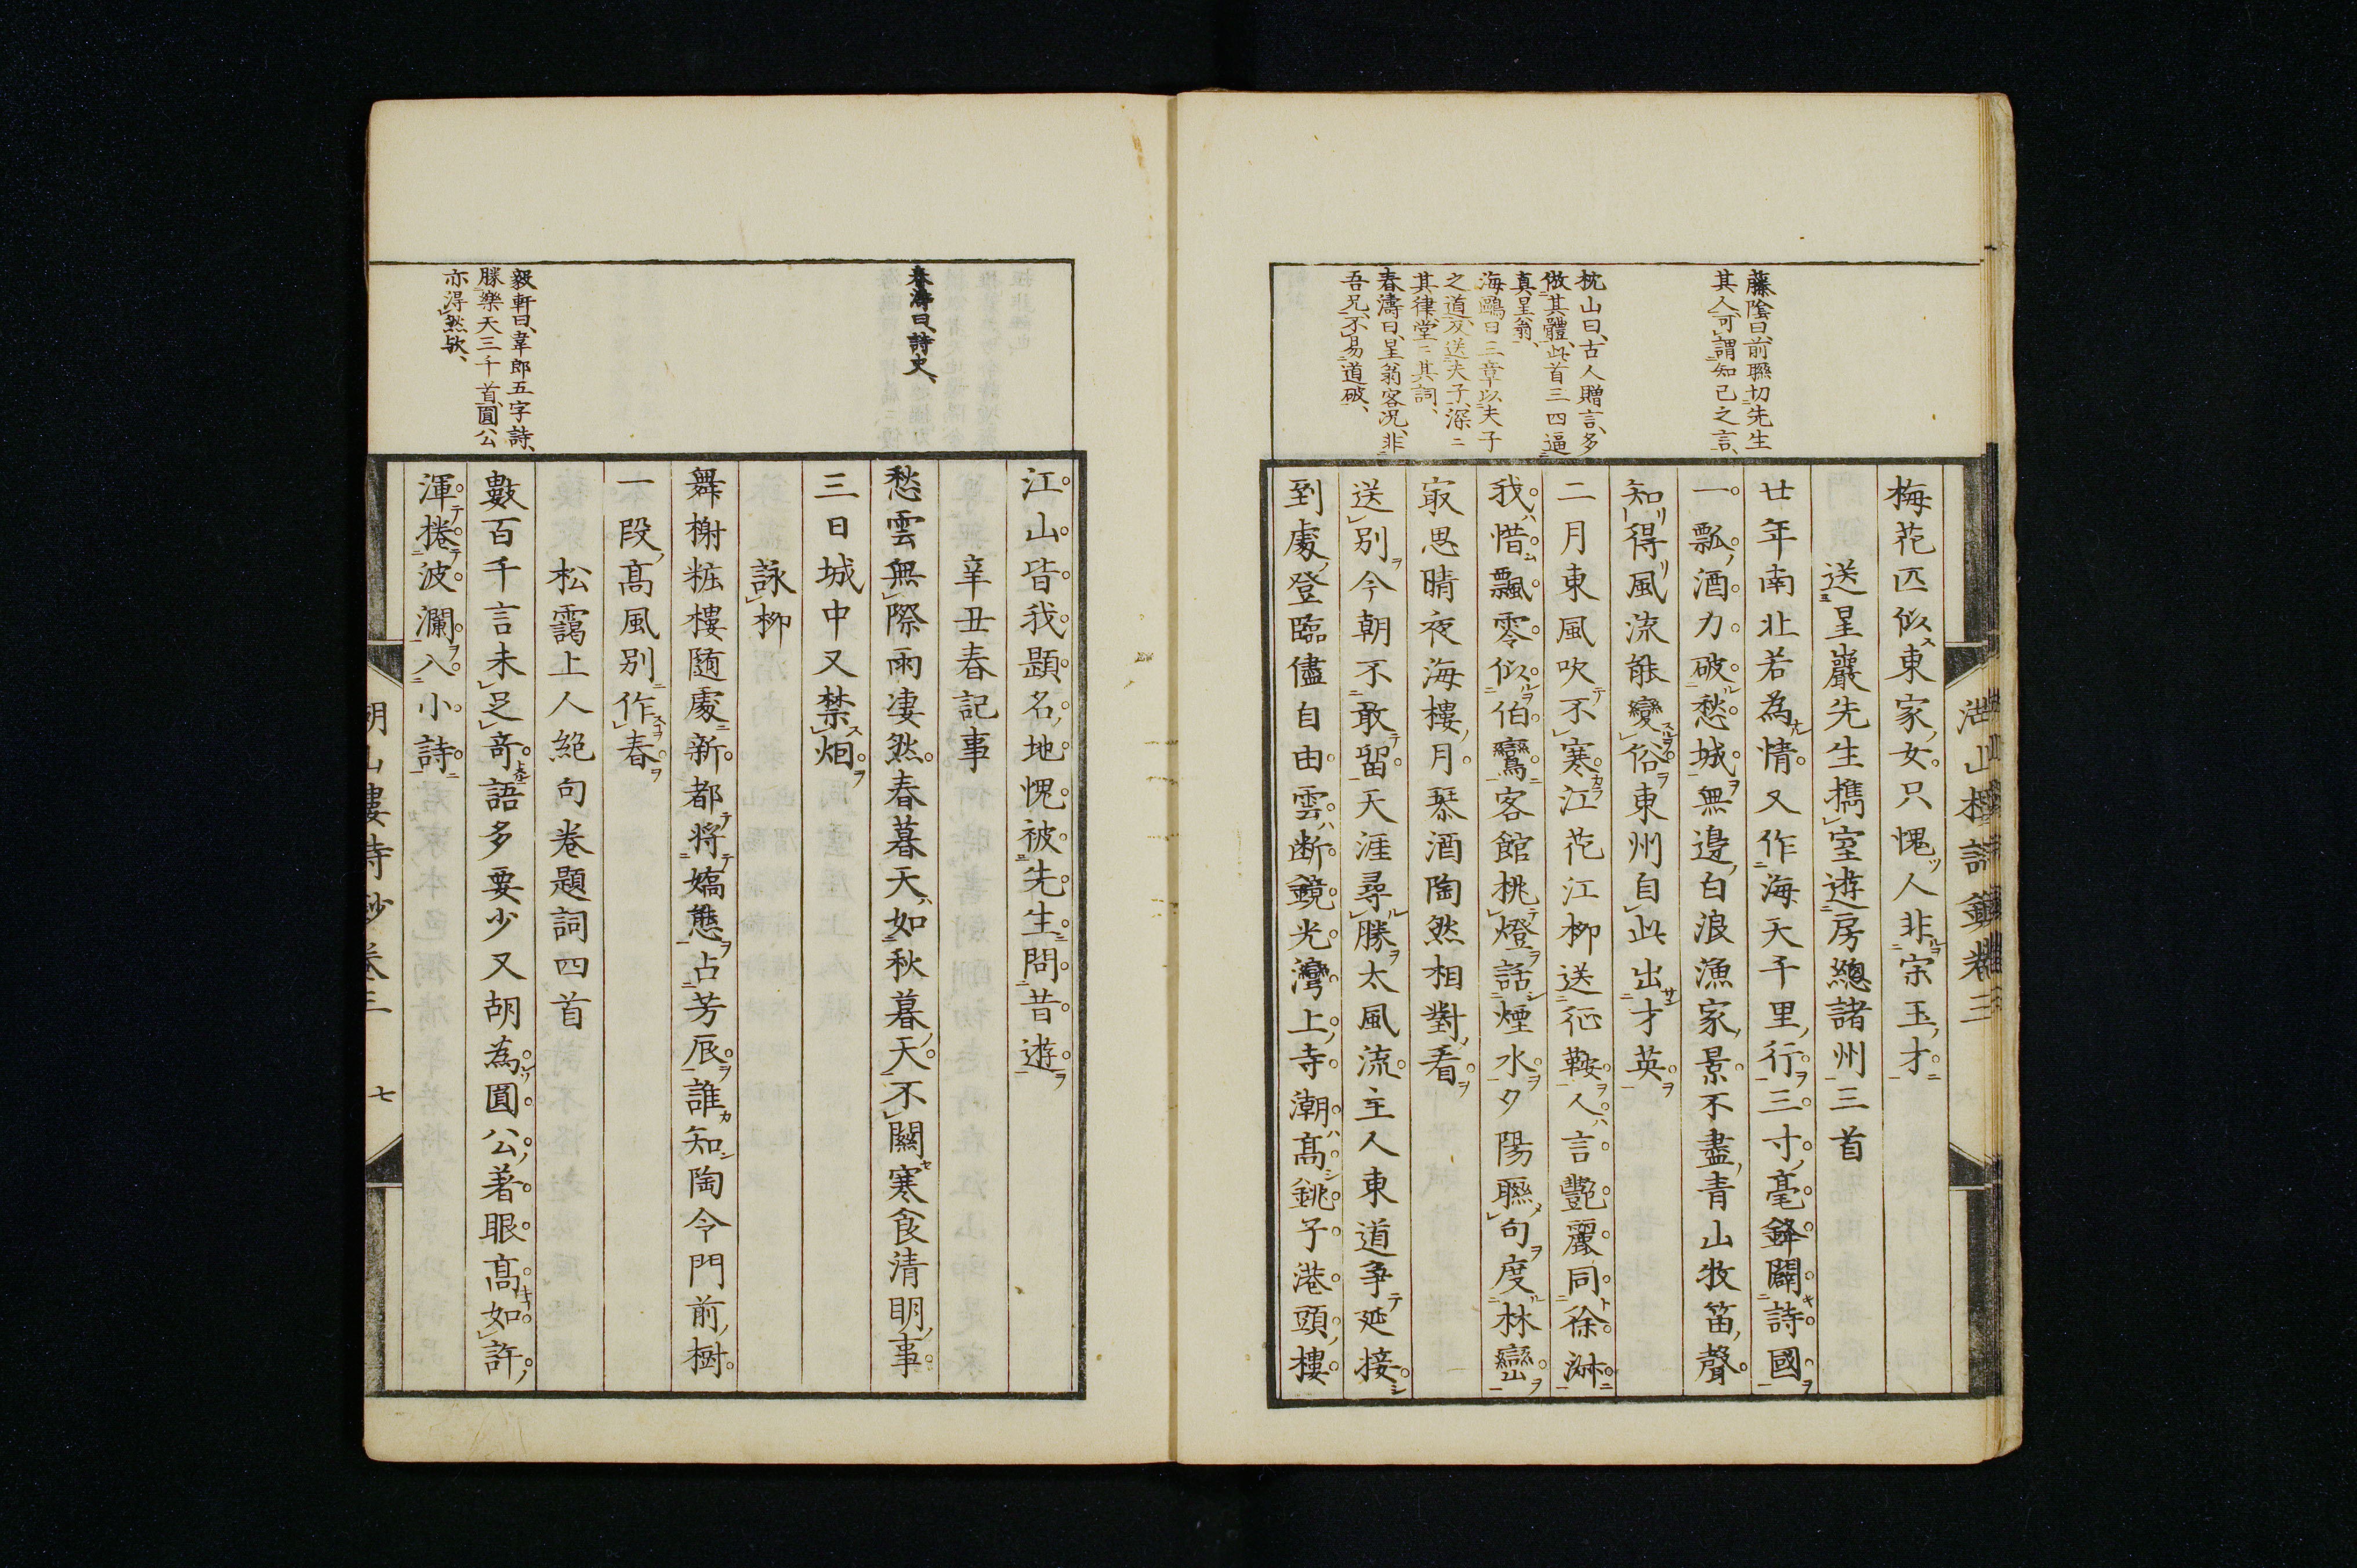 藤陰曰、前聯切先生
其人、可謂知己之言、
枕山曰、古人贈言、多
倣其體、此首三四逼
真星翁、
海鷗曰三章以夫子
之道及送夫子、深ニ
其律堂ニ其詞、
春濤曰、星翁客況、非
吾兄、不易道破、
梅花匹似東家女只愧人非宋玉才
送星巖先生携室遊房總諸州三首
廿年南北若為情又作海天千里行三寸毫鋒闢詩國
一瓢酒力破愁城無邊白浪漁家景不盡青山牧笛聲
知得風流能變俗東州自此出才英
二月東風吹不寒江花江柳送征鞍人言艷麗同徐淑
我惜飄零似伯鸞客館挑燈話煙水夕陽聯句度林巒
㝡思晴夜海樓月琴酒陶然相對看
送別今朝不敢留天涯尋勝太風流主人東道争延接
到處登臨儘自由雲断鏡光灣上寺潮高銚子港頭樓
春濤曰、詩史、
毅軒曰、韋郎五字詩、
勝樂天三千首、圓公
亦得然欤、
江山皆我題名地愧被先生問昔遊
辛丑春記事
愁雲無際雨凄然春暮天如秋暮天不關寒食清明事
三日城中又禁烟
詠柳
舞榭粧樓随處新都将嬌態占芳辰誰知陶令門前樹
一段高風別作春
松靄上人絶句巻題詞四首
數百千言未足奇語多要少又胡為圓公著眼高如許
渾捲波瀾入小詩
湖山樓詩鈔巻三 七